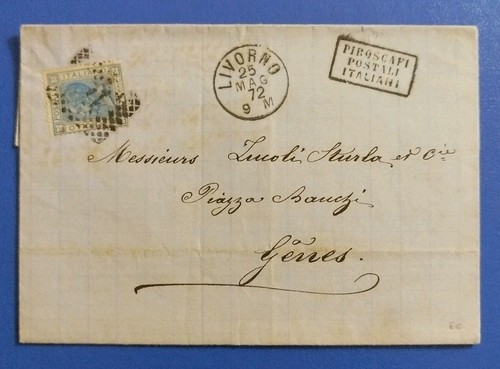 LIVORNO
25
MAG
72
9 M
PIROSCAFI
POSTALI
ITALIANI
Messieurs Sturla et Cie
Piazza Banchi
à
Gênes.